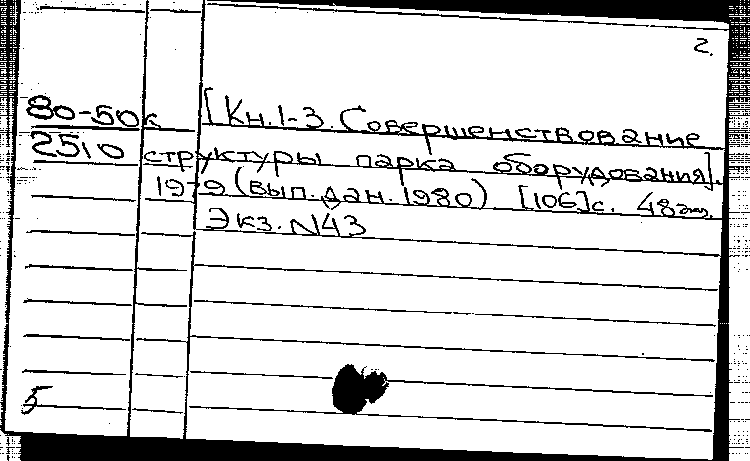 2.
80-50к [Кн.1-3. Совершенствование
2510 структуры парка оборудования].
1979 (вып. дан. 1980) [106]с. 48 экз.
Экз. N43
5